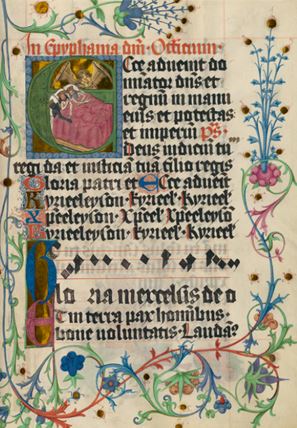 In Epyphania dni Officium.
Ecce advenit do
minator dns et
regnum in manu
eius et potestas
et imperium ps.
Deus iudicium tuum
regi da et iusticiam tuam filio regis
Gloria patri et Ecce advenit
Kyrieeleyson kyrieel kyrieel
Xpeeleyson Xpeel Xpeeleyso
Kyrieeleyson kyrieel kyrieel
Glo ria in excelsis de o
Et in terra pax hominibus
bone voluntatis Lauda